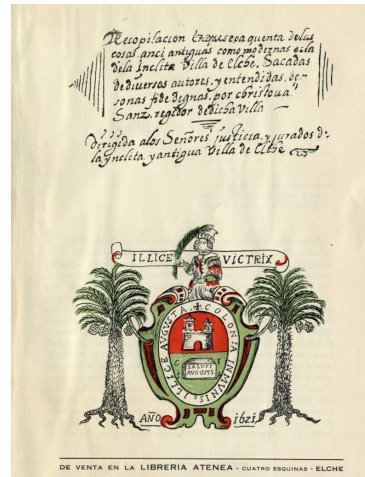 Recopilacion Enquesepa quenta delas
cosas, anci antiguas como modernas dela
dela inclita Villa de Elche, Sacadas
dediversos autores, y entendidas, de
sonas fide dignas, por christoval
Sanz, regidor dedicha Villa
Dirigida alos Señores justicia, y jurados de
la ynclita y antigua Villa de Elche
ILLICE VICTRIX
ILLICE AVGVSTA COLONIA INMVNIS
SALVTI
AVGVSTI
AÑO 1621
DE VENTA EN LA LIBRERIA ATENEA - CUATRO ESQUINAS - ELCHE